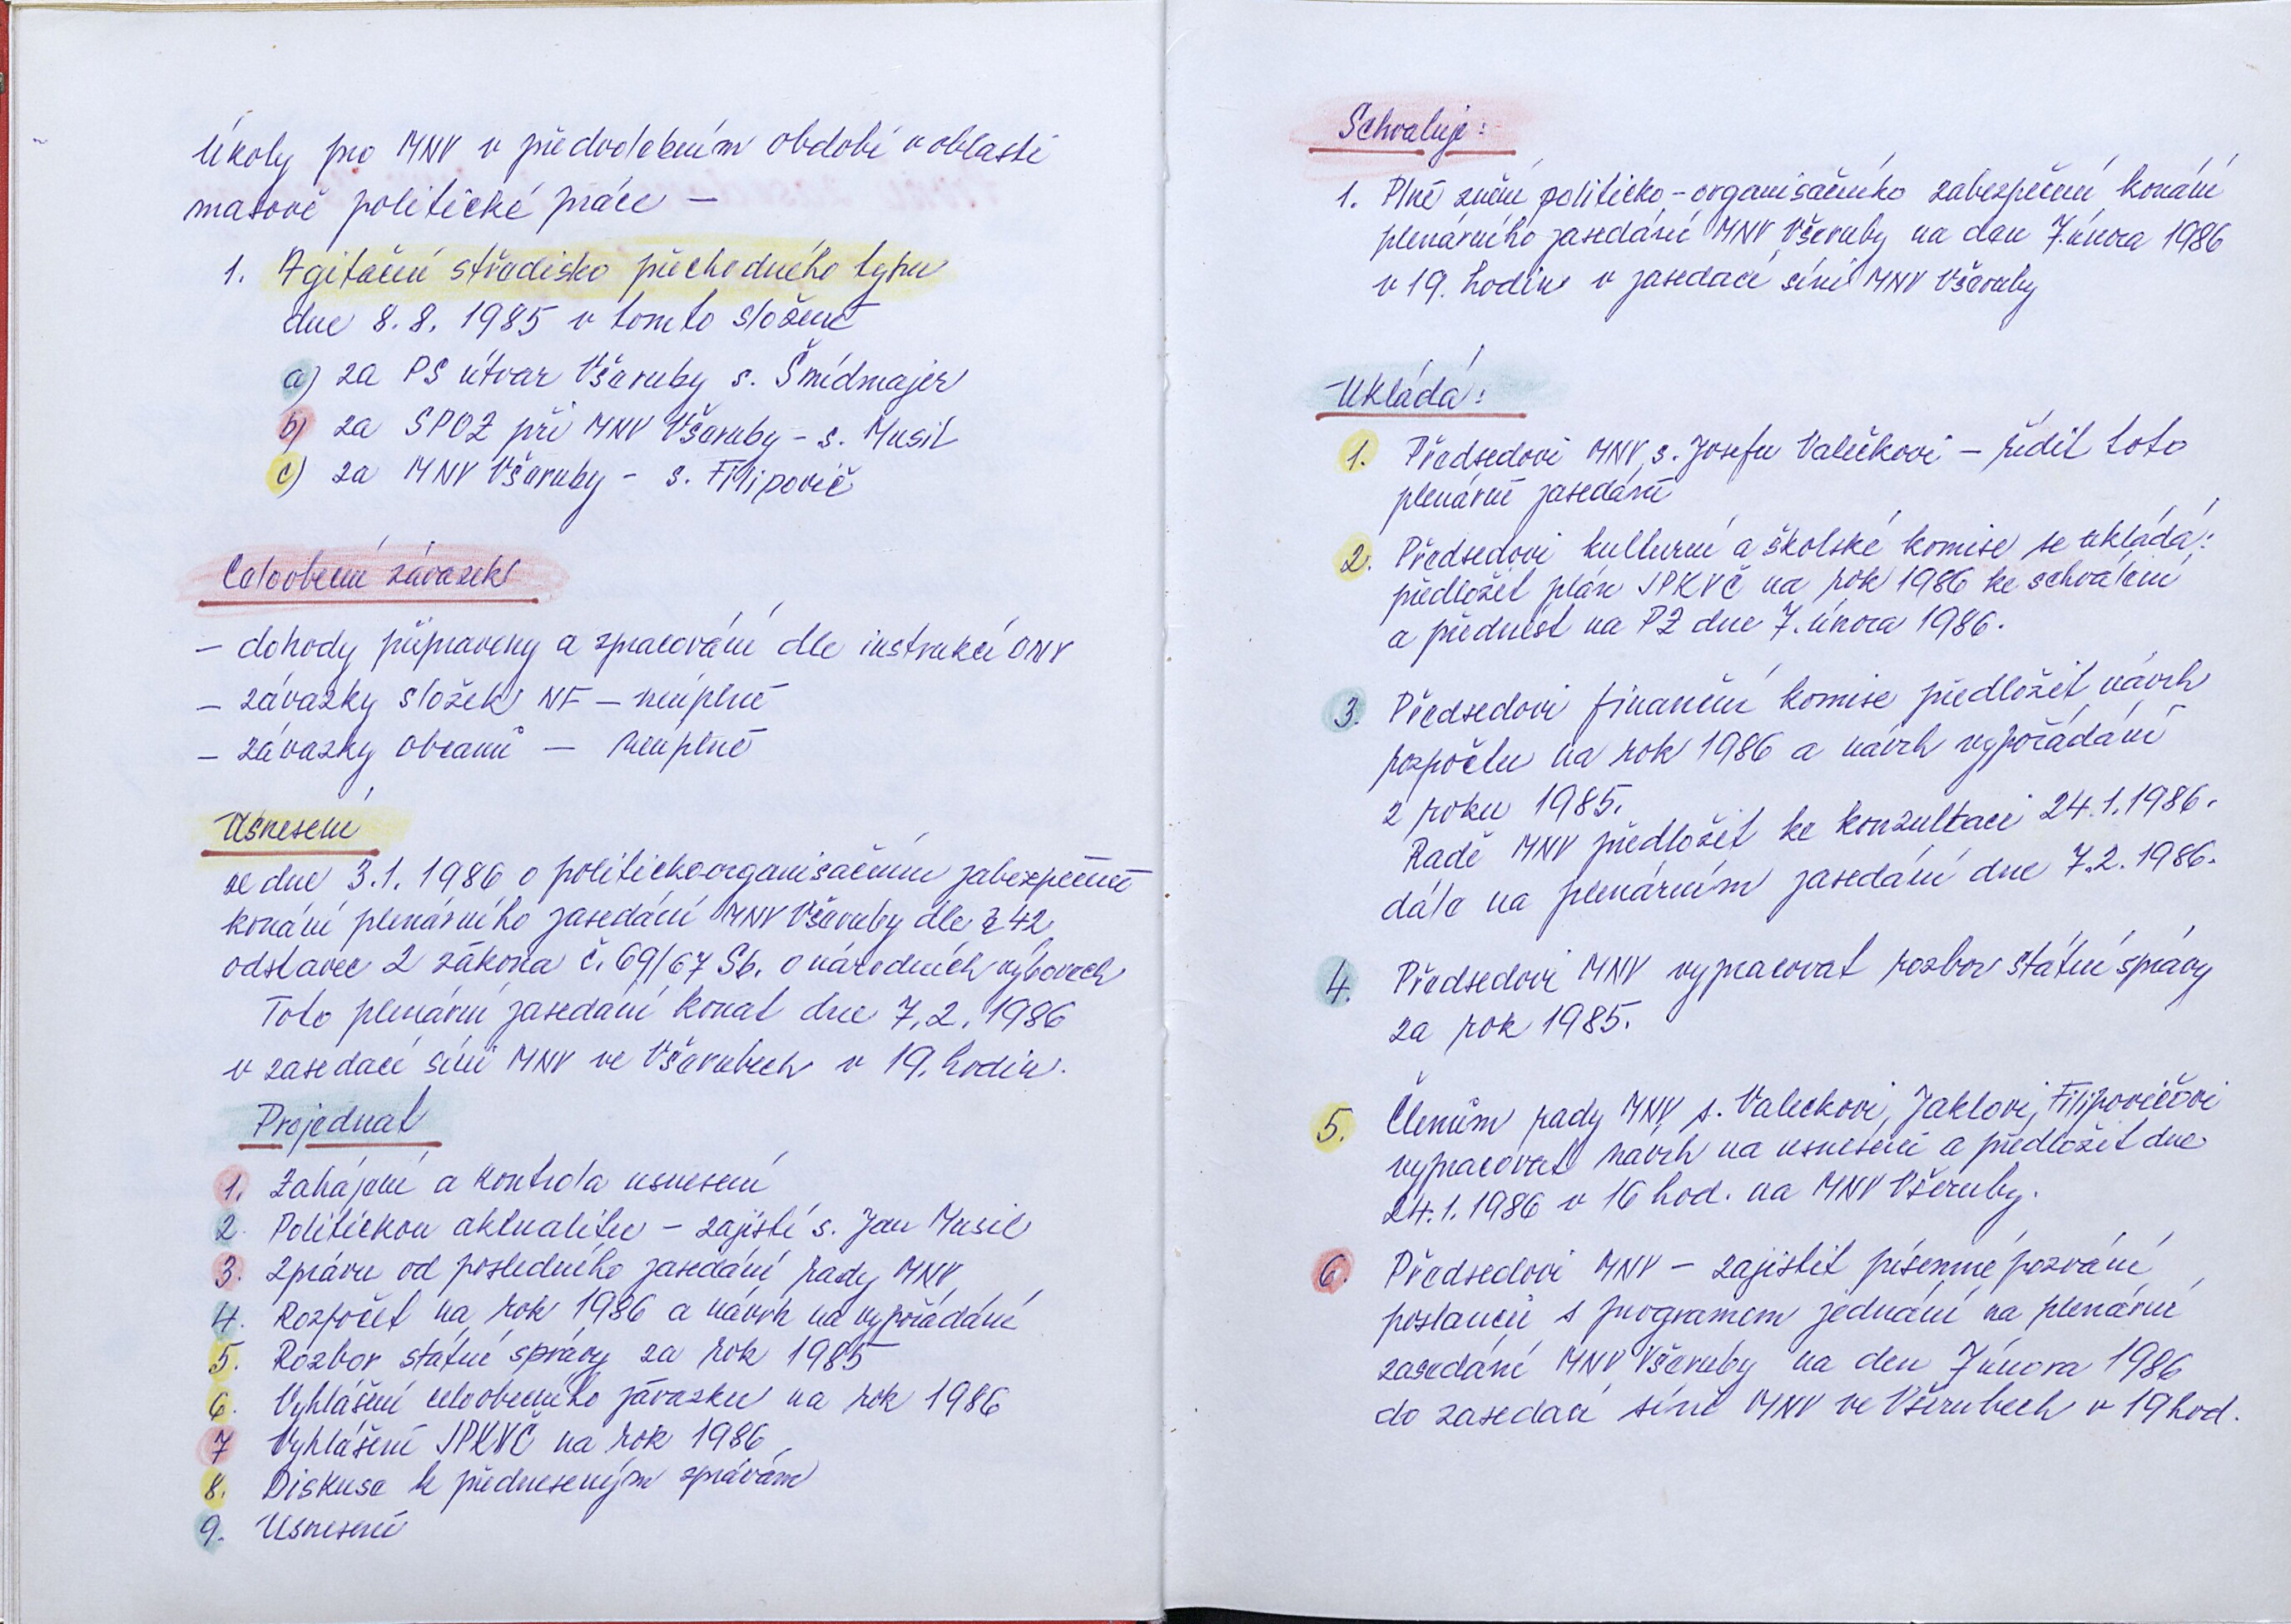 Úkoly pro MNV v předvolebním období v oblasti
masově politické práce –
1. Agitační středisko přechodného typu
dne 8. 8. 1985 v tomto složení
a) za PS útvar Všeruby s. Šmídmajer
b) za SPOZ při MNV Všeruby – s. Musil
c) za MNV Všeruby – s. Filipovič
Celoobecní závazek
– dohody připraveny a zpracování dle instrukcí ONV
– závazky složek NF – neúplné
– závazky občanů – neúplné
Usnesení
ze dne 3.1. 1986 o politickoorganisačním zabezpečení
konání plenárního zasedání MNV Všeruby dle § 42
odstavec 2 zákona č. 69/67 Sb. o národních výborech
Toto plenární zasedání konat dne 7. 2. 1986
v zasedací síni MNV ve Všerubech v 19. hodin.
Projednat
1. Zahájení a kontrola usnesení
2. Politickou aktualitu – zajistí s. Jan Musil
3. Zprávu od posledního zasedání rady MNV
4. Rozpočet na rok 1986 a návrh na vypořádání
5. Rozbor státní správy za rok 1985
6. Vyhlášení celoobecního závazku na rok 1986
7 Vyhlášení JPKVČ na rok 1986
8. Diskuse k předneseným zprávám
9. Usnesení
Schvaluje:
1. Plné znění politicko-organisačního zabezpečení konání
plenárního zasedání MNV Všeruby na den 7. února 1986
v 19. hodin v zasedací síni MNV Všeruby
Ukládá:
1. Předsedovi MNV, s. Josefu Valečkovi – řídit toto
plenární zasedání
2. Předsedovi kulturní a školské komise se ukládá:
předložit plán JPKVČ na rok 1986 ke schválení
a přednést na PZ dne 7. února 1986.
3. Předsedovi finanční komise předložit návrh
rozpočtu na rok 1986 a návrh vypořádání
z roku 1985.
Radě MNV předložit ke konzultaci 24.1.1986.
dále na plenárním zasedání dne 7.2.1986.
4. Předsedovi MNV vypracovat rozbor státní správy
za rok 1985.
5. Členům rady MNV, s. Valečkovi, Jaklovi, Filipovičovi
vypracovat návrh na usnesení a předložit dne
24.1.1986 v 16 hod. na MNV Všeruby.
6. Předsedovi MNV – zajistit písemné pozvání
poslanců s programem jednání na plenární
zasedání MNV Všeruby na den 7 února 1986
do zasedací síně MNV ve Všerubech v 19 hod.